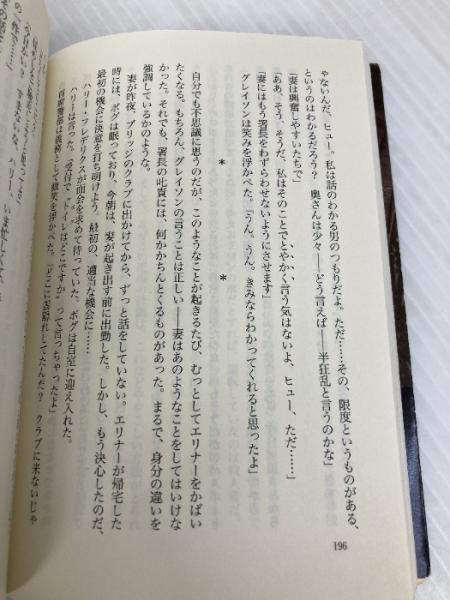 ゃないんだ、ヒュー。私は話のわかる男のつもりだよ。ただ……その、限度というものがある、
というのはわかるだろう？　奥さんは少々──どう言えば──半狂乱と言うのかな」
「妻は興奮しやすいたちで」
「ああ、そう、そうだ、私はそのことでとやかく言う気はないよ、ヒュー、ただ……」
「妻にはもう署長をわずらわせないようにさせます」
グレイソンは笑みを浮かべた。「うん、うん。きみならわかってくれると思ったよ」
＊　＊
自分でも不思議に思うのだが、このようなことが起きるたび、むっとしてエリナーをかばい
たくなる。もちろん、グレイソンの言うことは正しい──妻はあのようなことをしてはいけな
かった。それでも、署長の叱責には、何かかちんとくるものがあった。まるで、身分の違いを
強調しているかのような。
妻が昨夜、ブリッジのクラブに出かけてから、ずっと話をしていない。エリナーが帰宅した
時には、ボグは眠っており、今朝は、妻が起き出す前に出勤した。しかし、もう決心したのだ、
最初の機会に決意を打ち明けよう、最初の、適当な機会に……
ハリー・フレデリクスが面会を求めて待っていた。ボグは自室に迎え入れた。
ハリーは言った。「受付で〝トイレはどこですか〟って言っちゃったよ」
首席警部は義務として微笑を浮かべた。「どこに雲隠れしてたんだ？　クラブに来ないじゃ
196